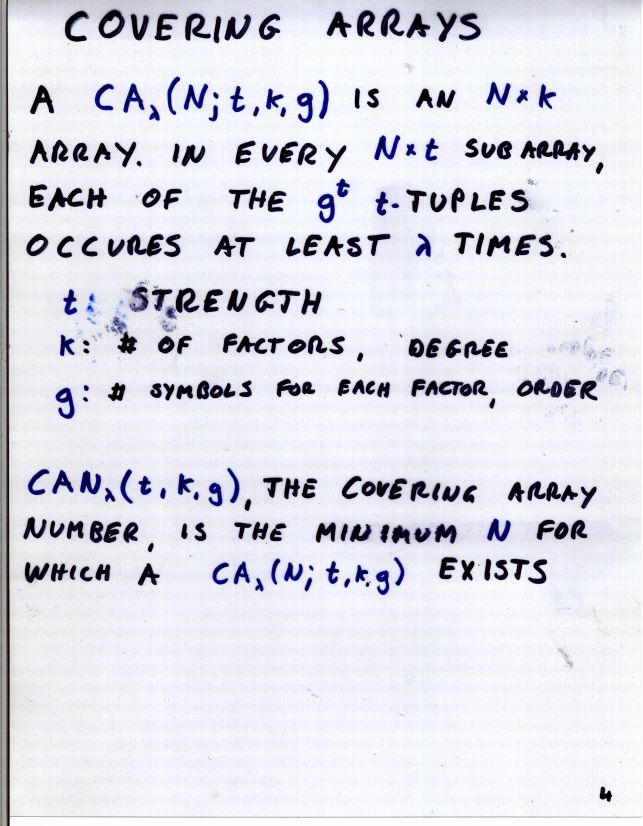 COVERING ARRAYS
A CAλ(N; t, k, g) IS AN N×k
ARRAY. IN EVERY N×t SUBARRAY,
EACH OF THE g^t t-TUPLES
OCCURES AT LEAST λ TIMES.
t: STRENGTH
k: # OF FACTORS, DEGREE
g: # SYMBOLS FOR EACH FACTOR, ORDER
CANλ(t, k, g), THE COVERING ARRAY
NUMBER, IS THE MINIMUM N FOR
WHICH A CAλ(N; t, k, g) EXISTS
4